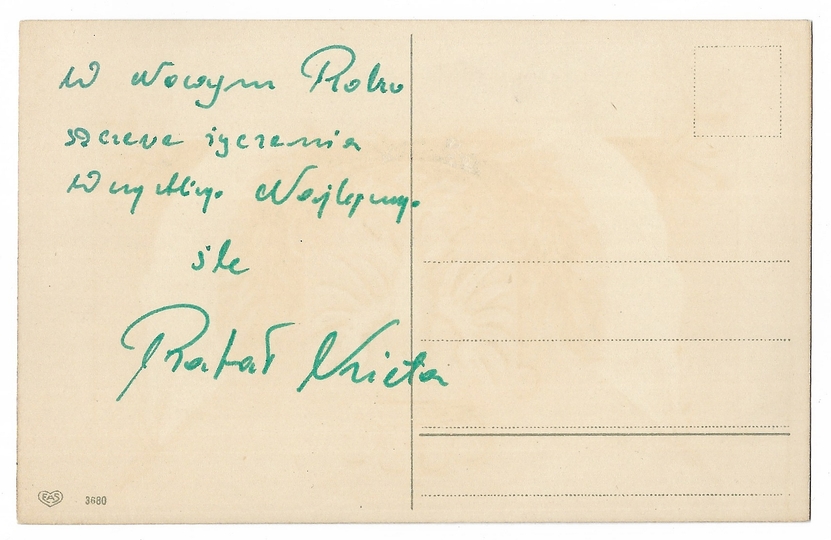 W Nowym Roku
szczere życzenia
Wszystkiego Najlepszego
śle
Rafał
EAS
3680